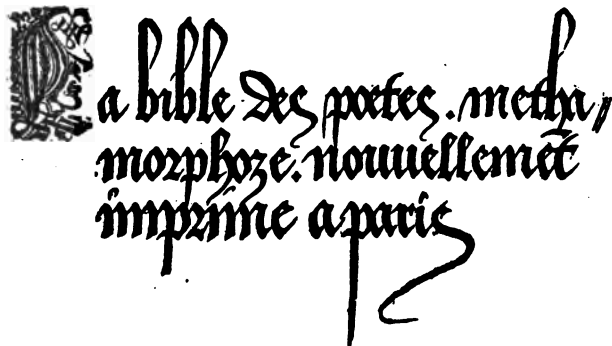 La bible des poetes. metha/
morphoze. nouvellemēt
imprime a paris